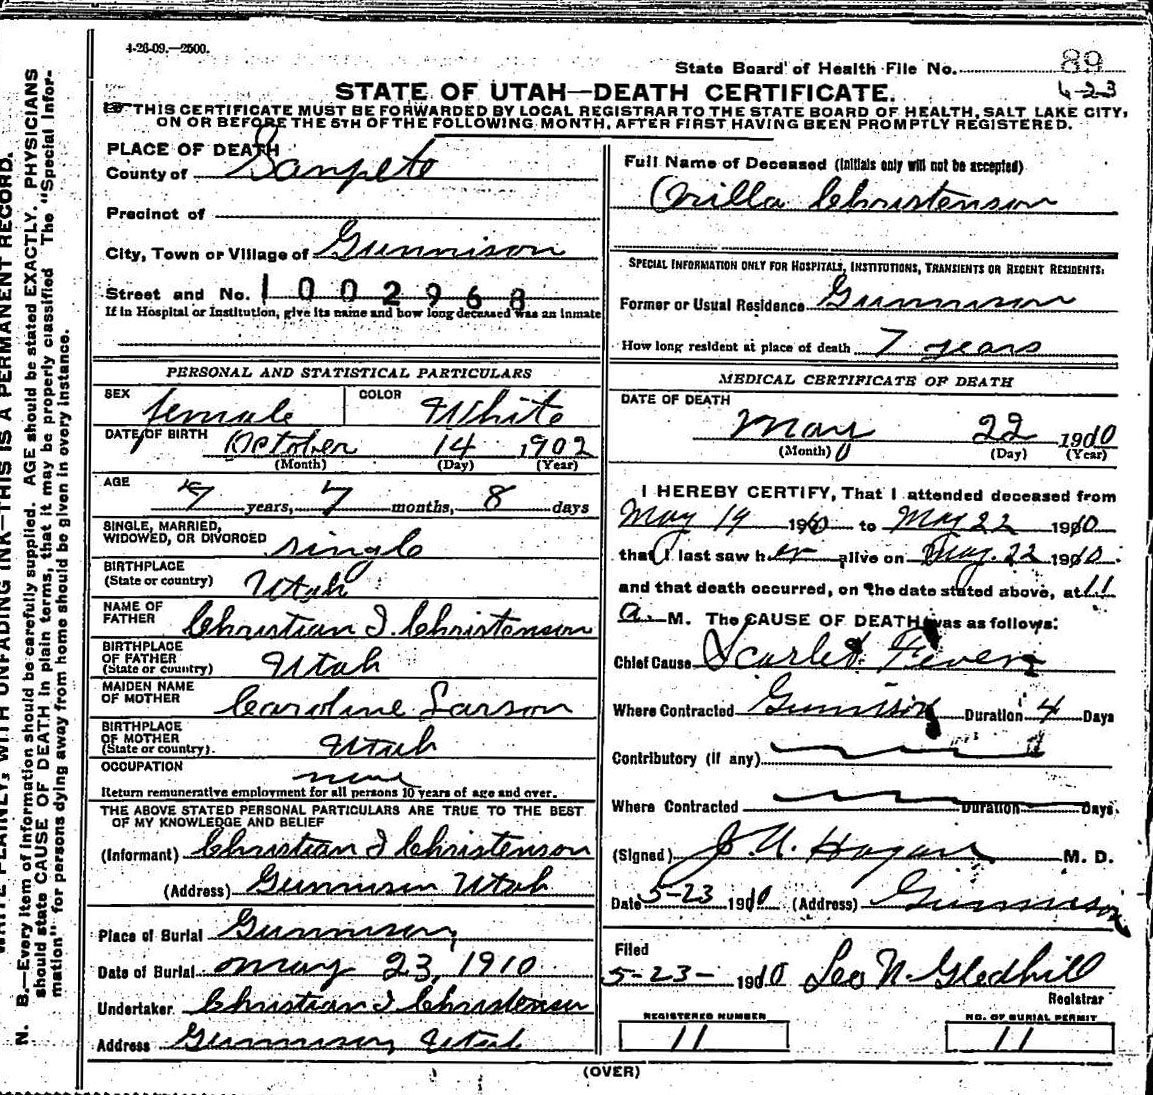 4-26-09.—2500.
State Board of Health File No. 89
STATE OF UTAH—DEATH CERTIFICATE. 4-23
THIS CERTIFICATE MUST BE FORWARDED BY LOCAL REGISTRAR TO THE STATE BOARD OF HEALTH, SALT LAKE CITY,
ON OR BEFORE THE 5TH OF THE FOLLOWING MONTH, AFTER FIRST HAVING BEEN PROMPTLY REGISTERED.
PLACE OF DEATH
County of Sanpete
Precinct of
City, Town or Village of Gunnison
Street and No. 1002968
If in Hospital or Institution, give its name and how long deceased was an inmate
PERSONAL AND STATISTICAL PARTICULARS
SEX female COLOR White
DATE OF BIRTH October 14 1902
(Month) (Day) (Year)
AGE 7 years, 7 months, 8 days
SINGLE, MARRIED,
WIDOWED, OR DIVORCED single
BIRTHPLACE
(State or country) Utah
NAME OF
FATHER Christian I. Christenson
BIRTHPLACE
OF FATHER
(State or country) Utah
MAIDEN NAME
OF MOTHER Caroline Larson
BIRTHPLACE
OF MOTHER
(State or country). Utah
OCCUPATION none
Return remunerative employment for all persons 10 years of age and over.
THE ABOVE STATED PERSONAL PARTICULARS ARE TRUE TO THE BEST
OF MY KNOWLEDGE AND BELIEF
(Informant) Christian I Christenson
(Address) Gunnison Utah
Place of Burial Gunnison
Date of Burial May 23, 1910
Undertaker Christian I Christensen
Address Gunnison, Utah
Full Name of Deceased (Initials only will not be accepted)
Orilla Christenson
SPECIAL INFORMATION ONLY FOR HOSPITALS, INSTITUTIONS, TRANSIENTS OR RECENT RESIDENTS:
Former or Usual Residence Gunnison
How long resident at place of death 7 years
MEDICAL CERTIFICATE OF DEATH
DATE OF DEATH
May 22 1910
(Month) (Day) (Year)
I HEREBY CERTIFY, That I attended deceased from
May 19 1910 to May 22 1910
that I last saw her alive on May. 22 1910.
and that death occurred, on the date stated above, at 11
a. M. The CAUSE OF DEATH was as follows:
Chief Cause Scarlet Fever
Where Contracted Gunnison Duration 4 Days
Contributory (if any)
Where Contracted Duration Days.
(Signed) J. U. Hagan M. D.
Date 5-23 1910 (Address) Gunnison
Filed
5-23- 1910 Leo N. Gledhill
Registrar
REGISTERED NUMBER
11
NO. OF BURIAL PERMIT
11
(OVER)
WRITE PLAINLY, WITH UNFADING INK—THIS IS A PERMANENT RECORD.
N. B.—Every item of information should be carefully supplied. AGE should be stated EXACTLY. PHYSICIANS
should state CAUSE OF DEATH in plain terms, that it may be properly classified. The "Special Infor-
mation" for persons dying away from home should be given in every instance.